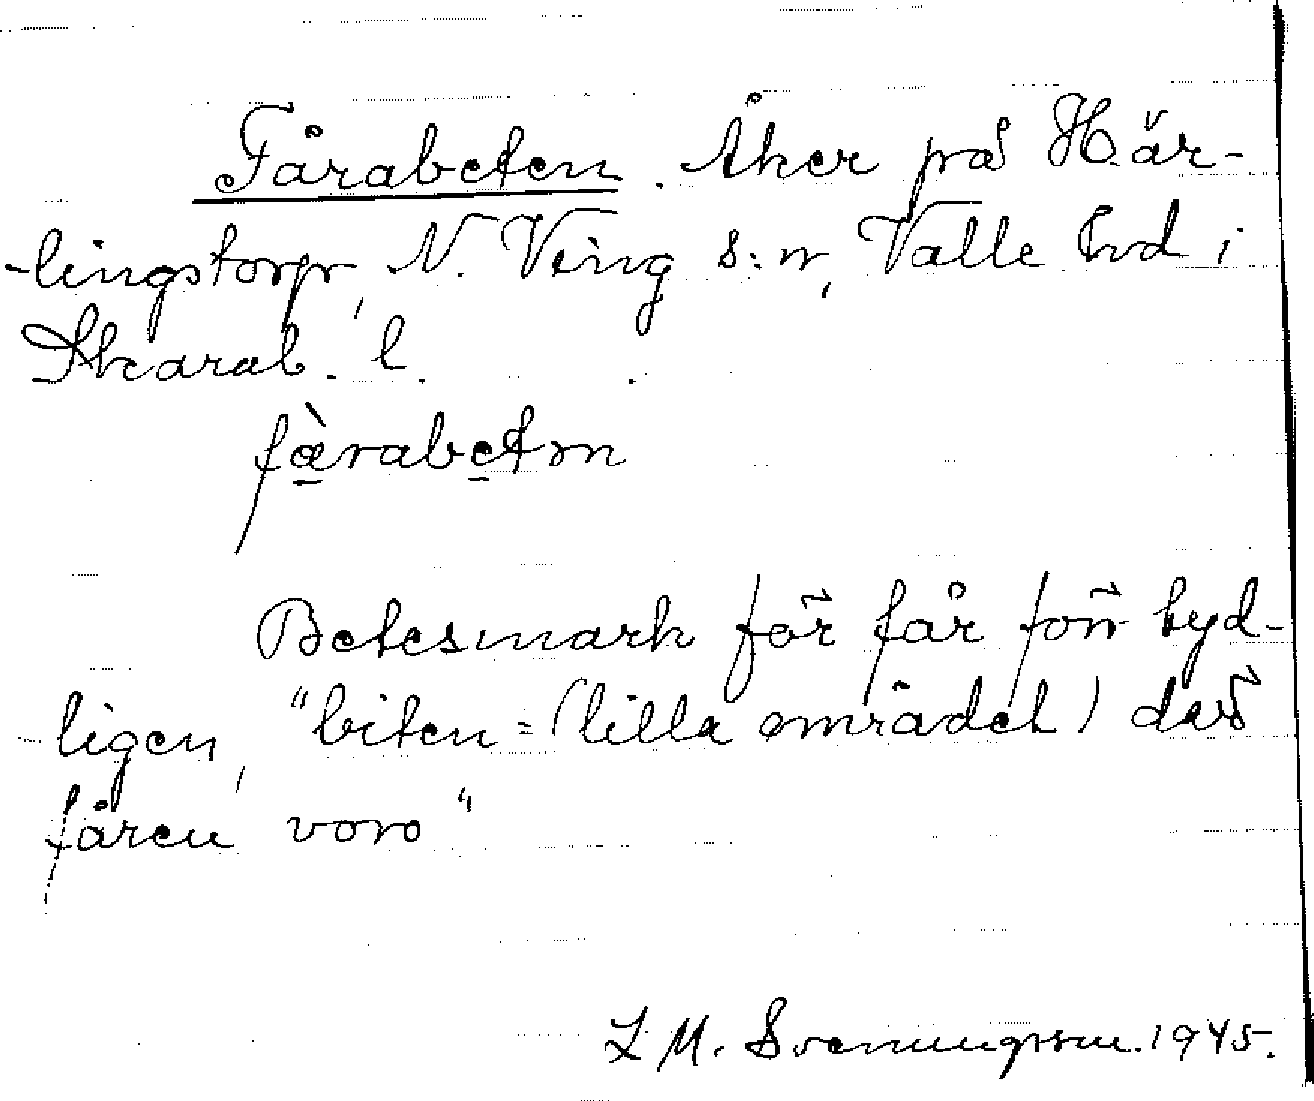 Fårabeten. Åker på Här-
-lingstorp, N. Ving s:n, Valle hd i
Skarab. l.
fæ̀rabetn
Betesmark för får förr tyd-
ligen, "biten = (lilla området) där
fåren voro"
L M. Svenungsson. 1945.